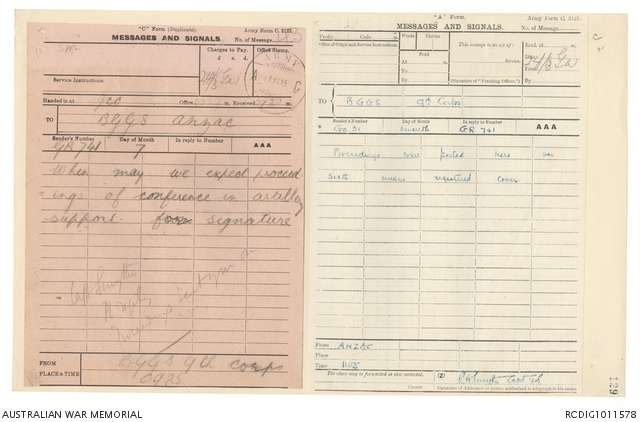 "C" Form (Duplicate). Army Form C. 2123.
MESSAGES AND SIGNALS. No. of Message
Charges to Pay. Office Stamp.
£ s. d.
Service Instructions.
Handed in at Office Received
TO BGGS Anzac
Sender's Number Day of Month In reply to Number AAA
GR 741 7
When may we expect proceed
ings of conference in artillery
support for signature
FROM BGGS 9th Corps
PLACE & TIME 0935
"A" Form. Army Form C. 2121.
MESSAGES AND SIGNALS. No. of Message
Prefix Code Words Charge
Office of Origin and Service Instructions.
Sent
At
To
By
This message is on a/c of:
Service.
(Signature of "Franking Officer.")
Recd. at
Date
From
By
TO BGGS 9th Corps
Sender's Number Day of Month In reply to Number AAA
Seventh GR 741
Proceedings were posted here on
Sixth under registered cover
From ANZAC
Place
Time 1105
The above may be forwarded as now corrected. (Z)
Censor. Signature of Addressor or person authorised to telegraph in his name.
129
AUSTRALIAN WAR MEMORIAL
RCDIG1011578